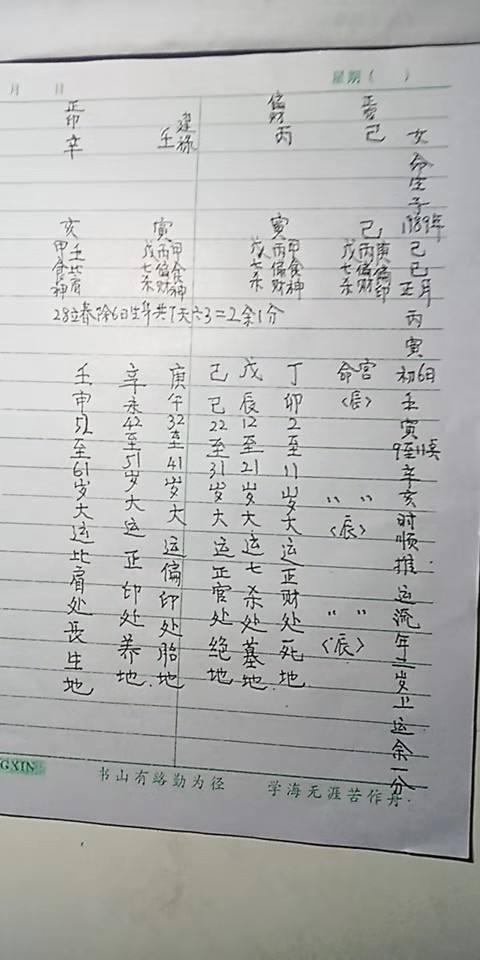 月 日
星期( )
女命生于1989年己巳正月丙寅初6日壬寅9至11点辛亥时顺推运流年二岁上运余一分
正官
己
巳
庚偏印
丙偏财
戊七杀
偏财
丙
寅
甲食神
丙偏财
戊七杀
建禄
壬
寅
甲食神
丙偏财
戊七杀
正印
辛
亥
壬比肩
甲食神
28立春除6日生年共7天六3=2余1分
命宫
〈辰〉
〃 〃
〈辰〉
〃 〃
〈辰〉
丁卯2至11岁大运正财处死地
戊辰12至21岁大运七杀处墓地
己巳22至31岁大运正官处绝地
庚午32至41岁大运偏印处胎地
辛未42至51岁大运正印处养地
壬申52至61岁大运比肩处长生地
GXIN
书山有路勤为径 学海无涯苦作舟